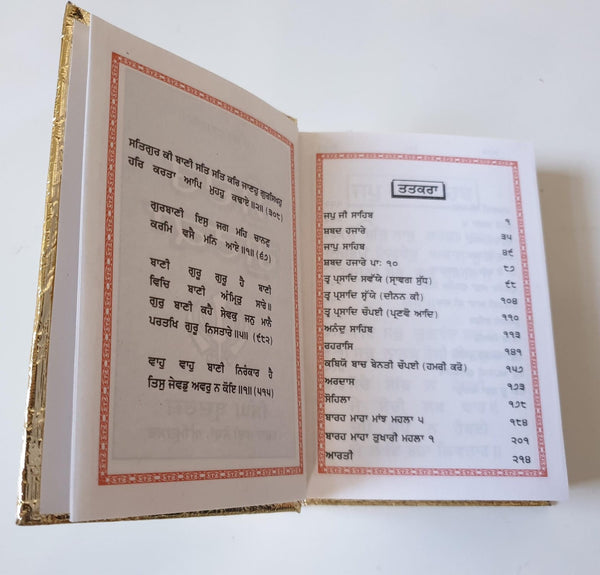 ਸਤਿਗੁਰ ਕੀ ਬਾਣੀ ਸਤਿ ਸਤਿ ਕਰਿ ਜਾਣਹੁ ਗੁਰਸਿਖਹੁ
ਹਰਿ ਕਰਤਾ ਆਪਿ ਮੁਹਹੁ ਕਢਾਏ॥੨॥ (੩੦੮)
ਗੁਰਬਾਣੀ ਇਸੁ ਜਗ ਮਹਿ ਚਾਨਣੁ
ਕਰਮਿ ਵਸੈ ਮਨਿ ਆਏ॥੧॥ (੬੭)
ਬਾਣੀ ਗੁਰੂ ਗੁਰੂ ਹੈ ਬਾਣੀ
ਵਿਚਿ ਬਾਣੀ ਅੰਮ੍ਰਿਤੁ ਸਾਰੇ॥
ਗੁਰੁ ਬਾਣੀ ਕਹੈ ਸੇਵਕੁ ਜਨੁ ਮਾਨੈ
ਪਰਤਖਿ ਗੁਰੂ ਨਿਸਤਾਰੇ॥੫॥ (੯੮੨)
ਵਾਹੁ ਵਾਹੁ ਬਾਣੀ ਨਿਰੰਕਾਰ ਹੈ
ਤਿਸੁ ਜੇਵਡੁ ਅਵਰੁ ਨ ਕੋਇ॥੧॥ (੫੧੫)
ਤਤਕਰਾ
ਜਪੁ ਜੀ ਸਾਹਿਬ ੧
ਸ਼ਬਦ ਹਜਾਰੇ ੩੫
ਜਾਪੁ ਸਾਹਿਬ ੪੯
ਸ਼ਬਦ ਹਜਾਰੇ ਪਾ: ੧੦ ੮੭
ਤ੍ਵ ਪ੍ਰਸਾਦਿ ਸਵੱਯੇ (ਸ੍ਰਾਵਗ ਸੁੱਧ) ੯੮
ਤ੍ਵ ਪ੍ਰਸਾਦਿ ਸ੍ਵੱਯੇ (ਦੀਨਨ ਕੀ) ੧੦੪
ਤ੍ਵ ਪ੍ਰਸਾਦਿ ਚੌਪਈ (ਪ੍ਰਣਵੋ ਆਦਿ) ੧੧੦
ਅਨੰਦੁ ਸਾਹਿਬ ੧੧੩
ਰਹਰਾਸਿ ੧੪੧
ਕਬਿਯੋ ਬਾਚ ਬੇਨਤੀ ਚੌਪਈ (ਹਮਰੀ ਕਰੋ) ੧੫੭
ਅਰਦਾਸ ੧੭੩
ਸੋਹਿਲਾ ੧੭੮
ਬਾਰਹ ਮਾਹਾ ਮਾਂਝ ਮਹਲਾ ੫ ੧੮੪
ਬਾਰਹ ਮਾਹਾ ਤੁਖਾਰੀ ਮਹਲਾ ੧ ੨੦੧
ਆਰਤੀ ੨੧੪